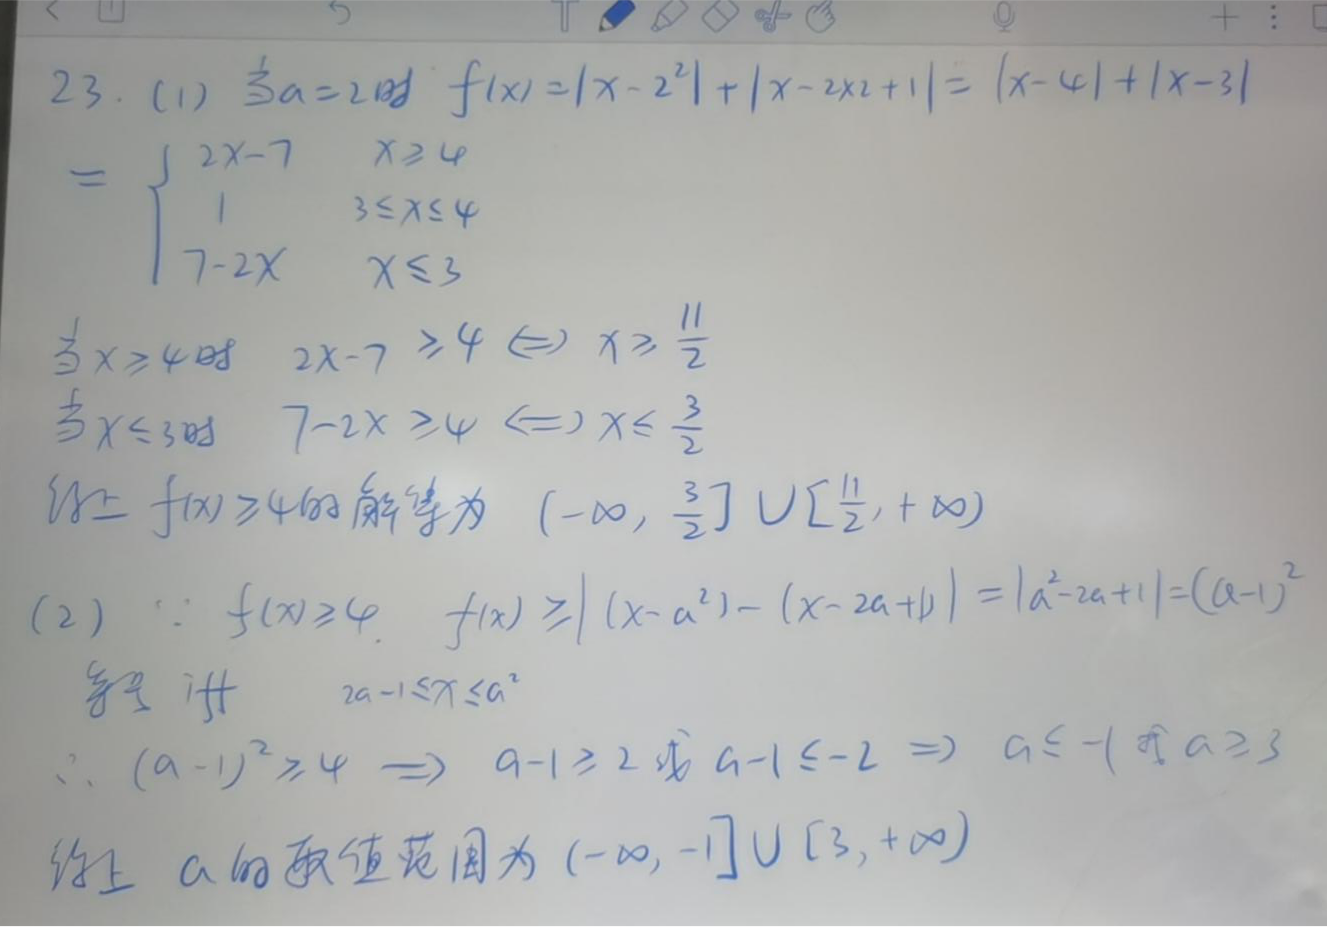 23. (1) 当a=2时 f(x)=|x-2²|+|x-2×2+1|=|x-4|+|x-3|
= { 2x-7 x≥4
1 3≤x≤4
7-2x x≤3
当x≥4时 2x-7≥4 ⇔ x≥11/2
当x≤3时 7-2x≥4 ⇔ x≤3/2
综上 f(x)≥4的解集为 (-∞, 3/2]∪[11/2, +∞)
(2) ∵ f(x)≥4. f(x)≥|(x-a²)-(x-2a+1)|=|a²-2a+1|=(a-1)²
等号 iff 2a-1≤x≤a²
∴ (a-1)²≥4 ⇒ a-1≥2 或 a-1≤-2 ⇒ a≤-1 或 a≥3
综上 a的取值范围为 (-∞, -1]∪[3, +∞)